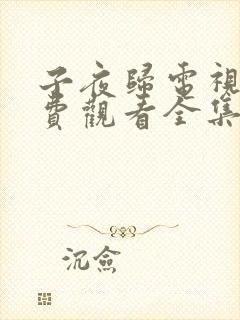 子夜歸電視
費觀看全集
沉僉